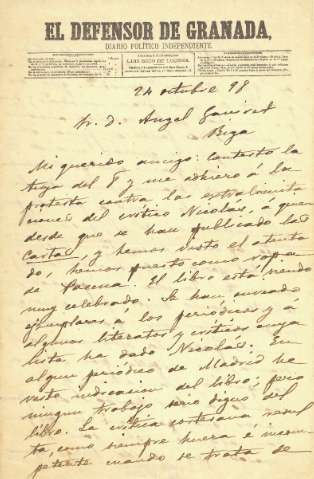 EL DEFENSOR DE GRANADA,
DIARIO POLÍTICO INDEPENDIENTE.
LUIS SECO DE LUCENA
24 octubre 98
Sr. D. Angel Ganivet
Riga
Mi querido amigo: Contesto la
tuya del 8 y me adhiero á la
protesta contra las extralimita
ciones del critico Nicolás, á quien
desde que se han publicado las
Cartas, y hemos visto el atenta
do, hemos puesto como ropa
de Pascua. El libro está siendo
muy celebrado. Se han enviado
ejemplares á los periódicos y á
algunos literatos y criticos cuya
lista ha dado Nicolás. En
algun periódico de Madrid he
visto indicacion del libro; pero
ningun trabajo serio digno del
libro. La critica cortesana resul
ta, como siempre huera é incom
petente cuando se trata de